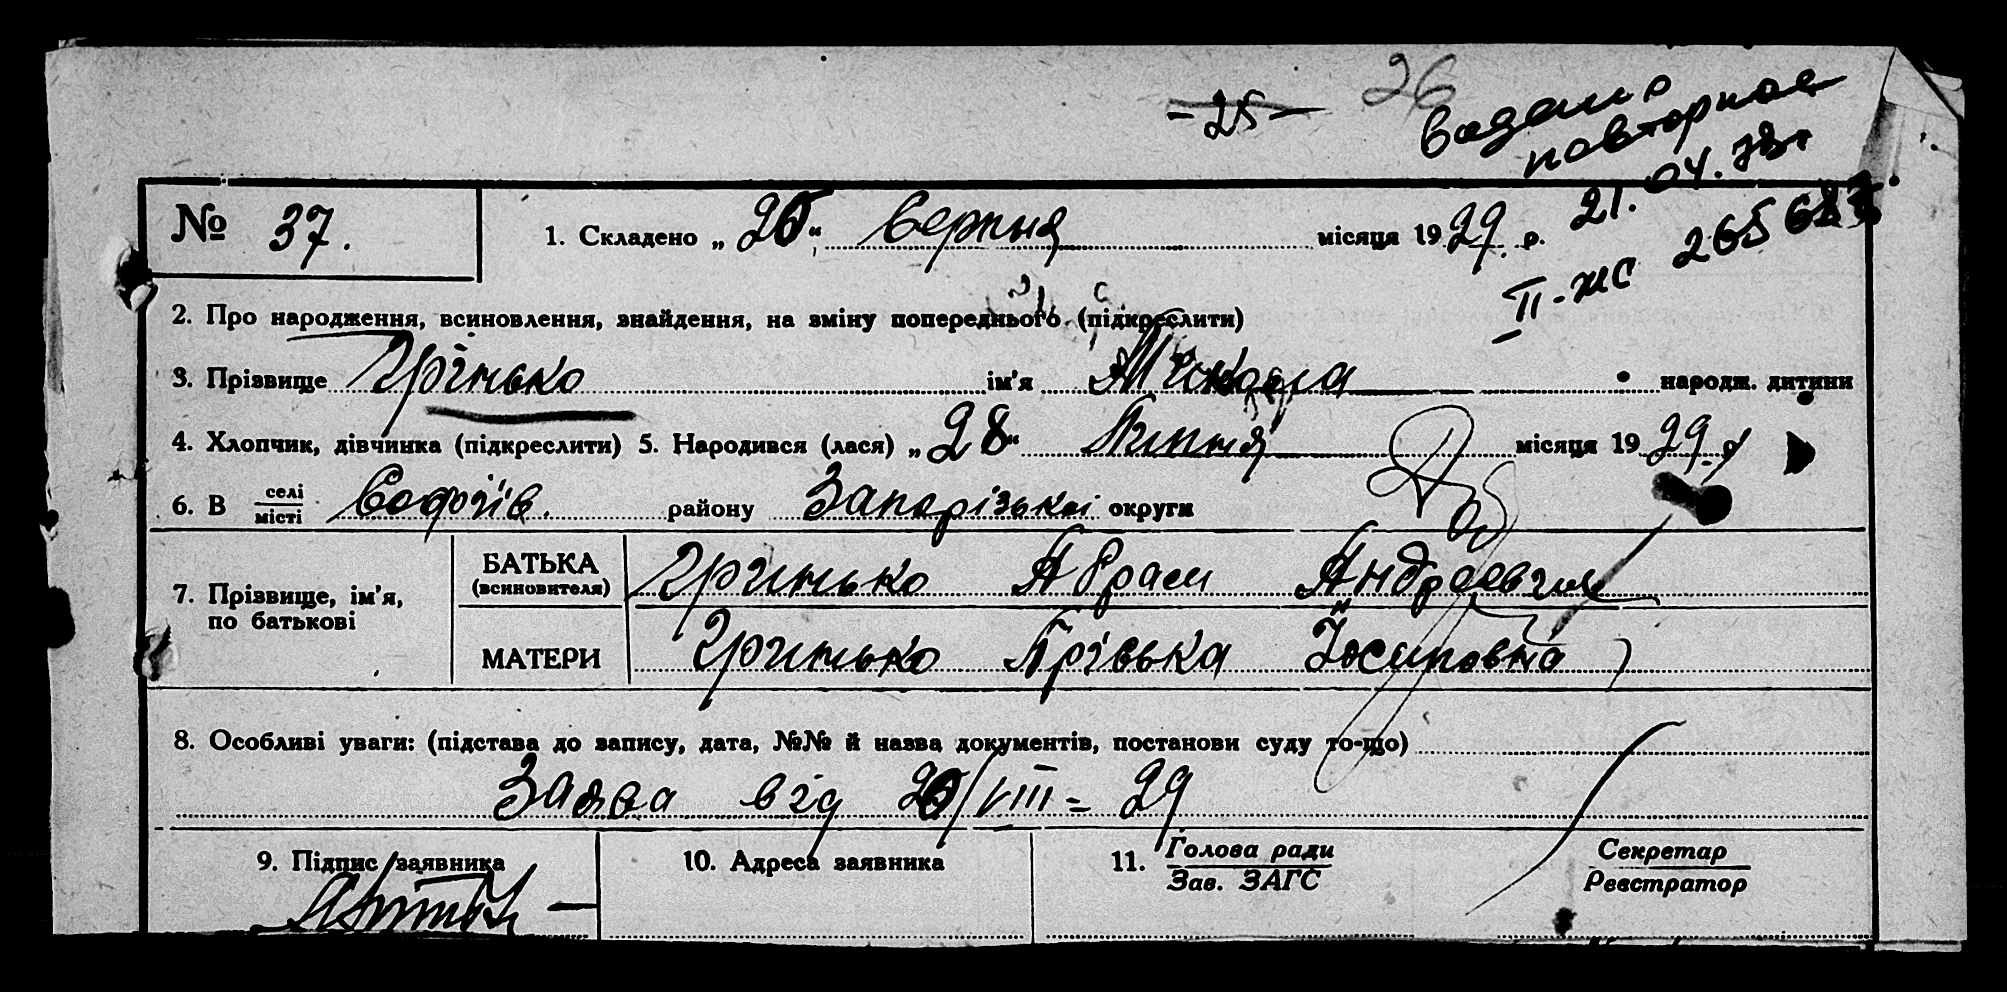 - 25 - 26
Видано
повторное
21.04.78г
II-ЖС 265683
№ 37.
1. Складено „ 20 “ Серпня місяця 1929 р.
2. Про народження, всиновлення, знайдення, на зміну попереднього (підкреслити)
3. Прізвище Грінько ім'я Микола народж. дитини
4. Хлопчик, дівчинка (підкреслити) 5. Народився (лася) „ 28 “ Липня місяця 1929 р
6. В селі / місті Софіїв. району Запорізькоі округи
7. Прізвище, ім'я, по батькові
БАТЬКА (всиновителя) Гринько Абрам Андреевич
МАТЕРИ Гринько Пріська Йосиповна
8. Особливі уваги: (підстава до запису, дата, №№ й назва документів, постанови суду то-що)
Заява від 20/VIII = 29
9. Підпис заявника 10. Адреса заявника 11. Голова ради / Зав. ЗАГС Секретар / Реєстратор